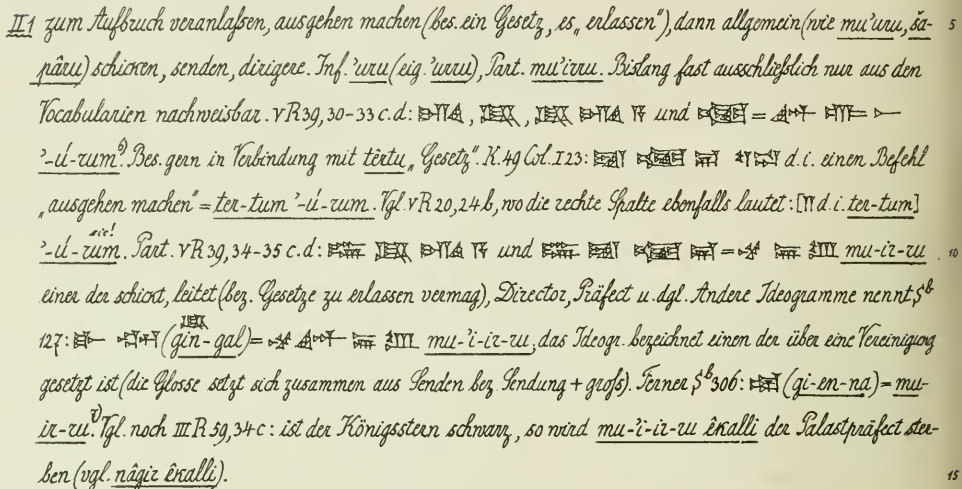 II1 zum Aufbruch veranlaſsen, ausgehen machen (bes. ein Gesetz, es „erlassen"), dann allgemein (wie mu'uru, ša- 5
pâru) schicken, senden, dirigere. Inf. 'uru (eig. 'urru), Part. mu'irru. Bislang fast ausschließlich nur aus den
Vocabularien nachweisbar. VR 39, 30-33 c.d: und =
'-ú-rum. Bes. gern in Verbindung mit têrtu „Gesetz". K. 49 Col. I 23: d.i. einen Befehl
„ausgehen machen" = ter-tum '-ú-rum. Vgl. VR 20, 24 b, wo die rechte Spalte ebenfalls lautet: [ d.i. ter-tum]
'-ú-rum (sic!). Part. VR 39, 34-35 c.d: und = mu-ir-ru 10
einer der schickt, leitet (bez. Gesetze zu erlassen vermag), Director, Präfect u. dgl. Andere Ideogramme nennt Sᵇ
127: (gin-gal) = mu-'i-ir-ru, das Ideogr. bezeichnet einen der über eine Vereinigung
gesetzt ist (die Glosse setzt sich zusammen aus Senden bez. Sendung + groſs). Ferner Sᵇ 306: (gi-en-na) = mu-
ir-ru. Vgl. noch III R 59, 34 c: ist der Königsstern schwarz, so wird mu-'i-ir-ru êkalli der Palastpräfect ster-
ben (vgl. nâgir êkalli). 15